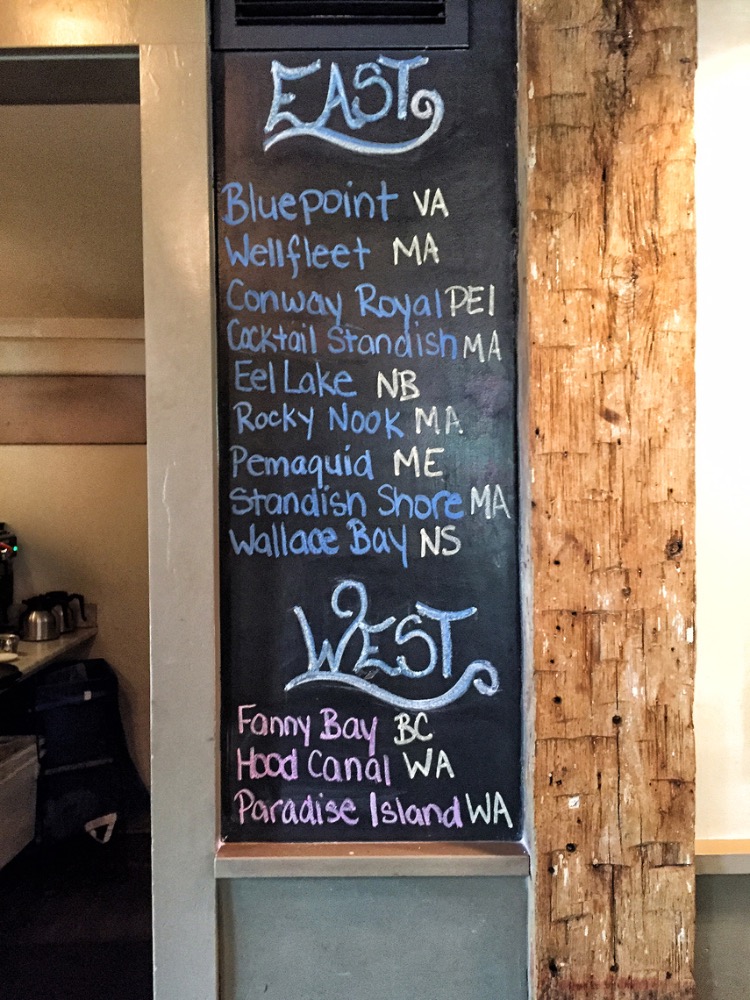 EAST
Bluepoint VA
Wellfleet MA
Conway Royal PEI
Cocktail Standish MA
Eel Lake NB
Rocky Nook MA
Pemaquid ME
Standish Shore MA
Wallace Bay NS
WEST
Fanny Bay BC
Hood Canal WA
Paradise Island WA